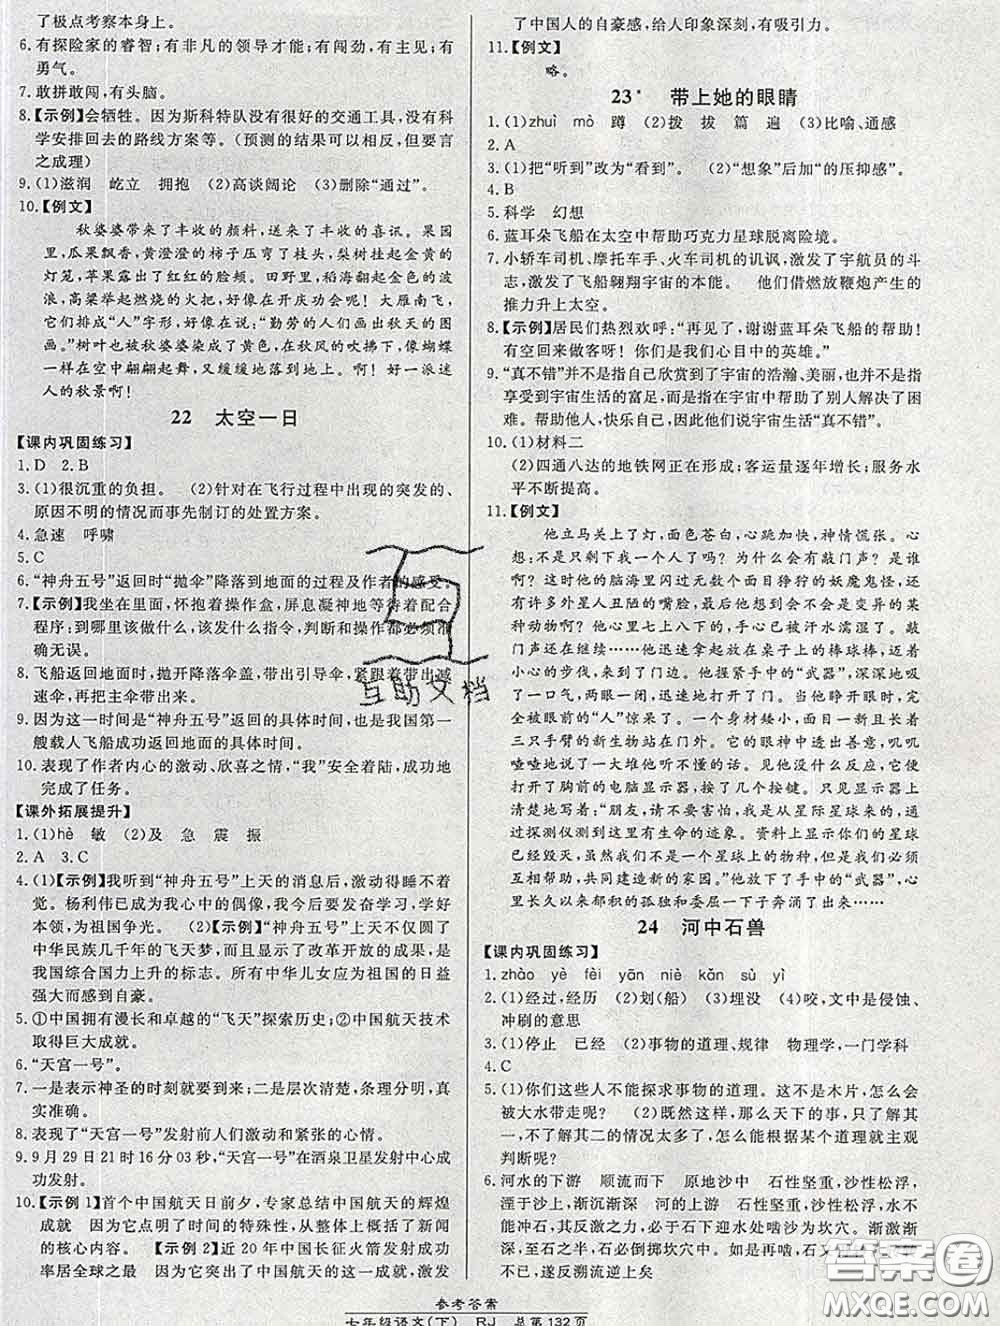 了极点考察本身上。
6.有探险家的睿智;有非凡的领导才能;有闯劲,有主见;有
勇气。
7.敢拼敢闯,有头脑。
8.【示例】会牺牲。因为斯科特队没有很好的交通工具,没有科
学安排回去的路线方案等。(预测的结果可以相反,但要言
之成理)
9.(1)滋润 屹立 拥抱 (2)高谈阔论 (3)删除“通过”。
10.【例文】
秋婆婆带来了丰收的颜料,送来了丰收的喜讯。果园
里,瓜果飘香,黄澄澄的柿子压弯了枝头,梨树挂起金黄的
灯笼,苹果露出了红红的脸颊。田野里,稻海翻起金色的波
浪,高粱举起燃烧的火把,好像在开庆功会呢!大雁南飞,
它们排成“人”字形,好像在说:“勤劳的人们画出秋天的图
画。”树叶也被秋婆婆染成了黄色,在秋风的吹拂下,像蝴蝶
一样在空中翩翩起舞,又缓缓地落到地上。好一派迷
人的秋景啊!
22 太空一日
【课内巩固练习】
1.D 2.B
3.(1)很沉重的负担。 (2)针对在飞行过程中出现的突发的、
原因不明的情况而事先制订的处置方案。
4.急速 呼啸
5.C
6.“神舟五号”返回时“抛伞”降落到地面的过程及作者的感受。
7.【示例】我坐在里面,怀抱着操作盒,屏息凝神地等待着配合
程序:到哪里该做什么,该发什么指令,判断和操作都必须准
确无误。
8.飞船返回地面时,抛开降落伞盖,带出引导伞,紧跟着带出减
速伞,再把主伞带出来。
9.因为这一时间是“神舟五号”返回的具体时间,也是我国第一
艘载人飞船成功返回地面的具体时间。
10.表现了作者内心的激动、欣喜之情,“我”安全着陆,成功地
完成了任务。
【课外拓展提升】
1.(1)hè 敏 (2)及 急 震 振
2.A 3.C
4.(1)【示例】我听到“神舟五号”上天的消息后,激动得睡不着
觉。杨利伟已成为我心中的偶像,我要发奋学习,学好
本领,为祖国争光。 (2)【示例】“神舟五号”上天不仅圆了
中华民族几千年的飞天梦,而且显示了改革开放的成果,是
我国综合国力上升的标志。所有中华儿女应为祖国的日益
强大而感到自豪。
5.①中国拥有漫长和卓越的“飞天”探索历史;②中国航天技术
取得巨大成就。
6.“天宫一号”。
7.一是表示神圣的时刻就要到来;二是层次清楚,条理分明,真
实准确。
8.表现了“天宫一号”发射前人们激动和紧张的心情。
9.9月29日21时16分03秒,“天宫一号”在酒泉卫星发射中心成
功发射。
10.【示例 1】首个中国航天日前夕,专家总结中国航天的辉煌
成就 因为它点明了时间的特殊性,从整体上概括了新闻
的核心内容。 【示例 2】近 20 年中国长征火箭发射成功
率居全球之最 因为它突出了中国航天的一大成就,激发
了中国人的自豪感,给人印象深刻,有吸引力。
11.【例文】
略。
23* 带上她的眼睛
1.(1)zhuì mò 蹲 (2)拨 拔 篇 遍 (3)比喻、通感
2.A
3.(1)把“听到”改为“看到”。 (2)“想象”后加“的压抑感”。
4.B
5.科学 幻想
6.蓝耳朵飞船在太空中帮助巧克力星球脱离险境。
7.小轿车司机、摩托车手、火车司机的讥讽,激发了宇航员的斗
志,激发了飞船翱翔宇宙的本能。 他们借燃放鞭炮产生的
推力升上太空。
8.【示例】居民们热烈欢呼:“再见了,谢谢蓝耳朵飞船的帮助!
有空回来做客呀!你们是我们心目中的英雄。”
9.“真不错”并不是指自己欣赏到了宇宙的浩瀚、美丽,也并不是指
享受到宇宙生活的富足,而是指在宇宙中帮助他人解决了困
难。帮助他人,快乐自己,因而说宇宙生活“真不错”。
10.(1)材料二
(2)四通八达的地铁网正在形成;客运量逐年增长;服务水
平不断提高。
11.【例文】
他立马关上了灯,面色苍白,心跳加快,神情慌张。心
想:不是只剩下我一个人了吗?为什么会有敲门声?是谁
啊?这时他的脑海里闪过无数个面目狰狞的妖魔鬼怪,还
有许多外星人丑陋的嘴脸,或者他想会不会是变异的某
种动物啊?他心里七上八下的,手心已被汗水濡湿了。敲
门声还在继续……他迅速地拿起放在桌子上的棒球棒,迈着
小心的步伐,来到了门边。他紧握手中的“武器”,深深地吸
了一口气,一闭眼,迅速地打开了门。当他睁开眼时,完全
被眼前的“人”惊呆了。一个身材矮小,一前一后且长着
三只手臂的新生物站在门外。它的眼神中透出善意,叽叽
喳喳地说了一大堆他听不懂的话。见他没有任何反应,它
打开了胸前的电脑显示器,按了几个按键。只见显示器上
清楚地写着:“朋友,请不要害怕,我是从星际星球来的,通
过探测仪测到这里有生命的迹象。资料上显示你们的星球
已经毁灭,虽然我们不是一个星球上的物种,但我们可以
资源共享,共同建造新的家园。”他放下了手中的“武器”,心
里长久以来郁积的孤独一下子奔涌了出来……
24 河中石兽
【课内巩固练习】
1.zhào yè fèi yān niè kǎn sù yì
2.(1)经过,经历 (2)划(船) (3)埋没 (4)咬,文中是侵蚀、
冲刷的意思
3.(1)停止 已经 (2)事物的道理、规律 物理学,一门学科
4.C
5.(1)你们这些人不能探求事物的道理。这不是木片,怎么会
被大水带走呢? (2)既然这样,那么天下的事,只了解其
一,不了解其二的情况太多了,怎么能根据某个道理就主观
判断呢?
6.河水的下游 顺流而下 原地沙中 石性坚重,沙性松浮,
湮于沙上,渐沉渐深 河的上游 石性坚重,沙性松浮,水
不能冲石,其反激之力,必于石下迎水处啮沙为坎穴。渐激渐
深,至石之半,石必倒掷坎穴中。如是再啮,石又再转,转转
不已,遂反溯流逆上矣
互助文档
答案圈
MXQE.COM
参考答案
七年级语文(下) RJ 总第132页